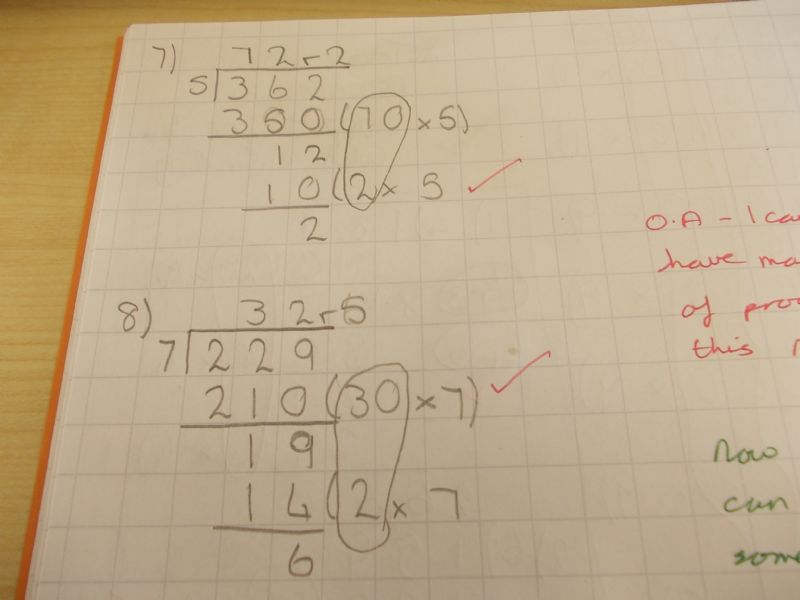 7) 72r2
5)362
350(70×5)
12
10(2×5
2
8) 32r5
7)229
210(30×7)
19
14(2×7
6
O.A - I ca
have ma
of pro
this
Now
can
some